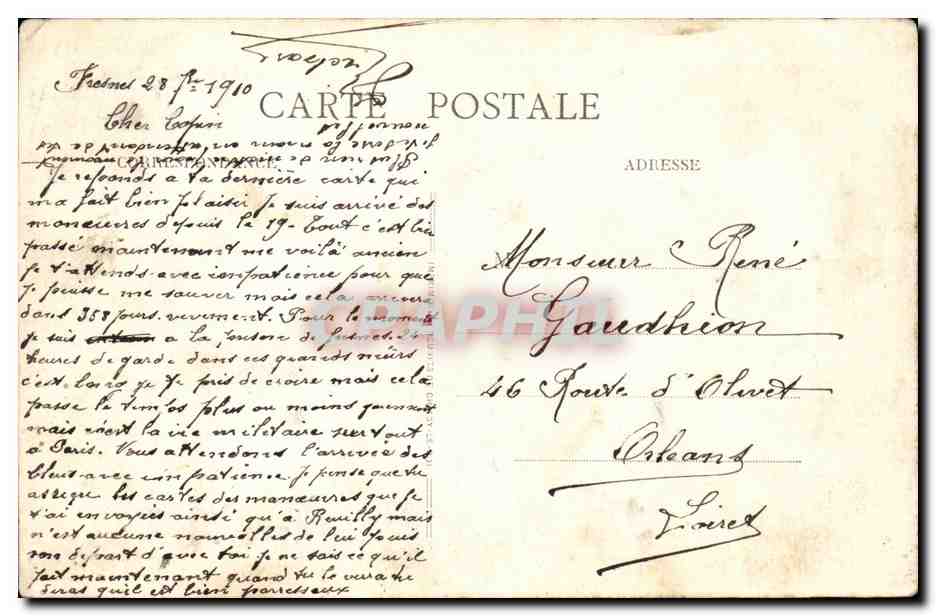 Fresnes 28 7bre 1910
CARTE POSTALE
Cher Copin
CORRESPONDANCE
ADRESSE
Je reponds a ta dernière carte qui
ma fait bien plaisir Je suis arrivé des
manœuvres depuis le 19. Tout c'est bien
passé maintenant me voilà ancien
Je t'attends avec impatience pour que
Je puisse me sauver mais cela arrivera
dans 358 Jours. vevement. Pour le moment
Je suis a la prison de fresnes. 24
heures de garde dans ces grands murs
c'est long Je te pris de croire mais cela
passe le temps plus ou moins
mais c'est la vie militaire surtout
à Paris. Nous attendons l'arrivée des
bleus avec impatience. Je pense que tu
as reçue les cartes des manœuvres que Je
t'ai envoyées ainsi qu'à Reuilly mais
n'est aucune nouvelles de lui depuis
son depart d'avec toi Je ne sais ce qu'il
fait maintenant quand tu le verra tu
diras qu'il est bien parresseux
Monsieur René
Gaudhion
46 Route d'Olivet
Orleans
Loiret
CPAPHIL